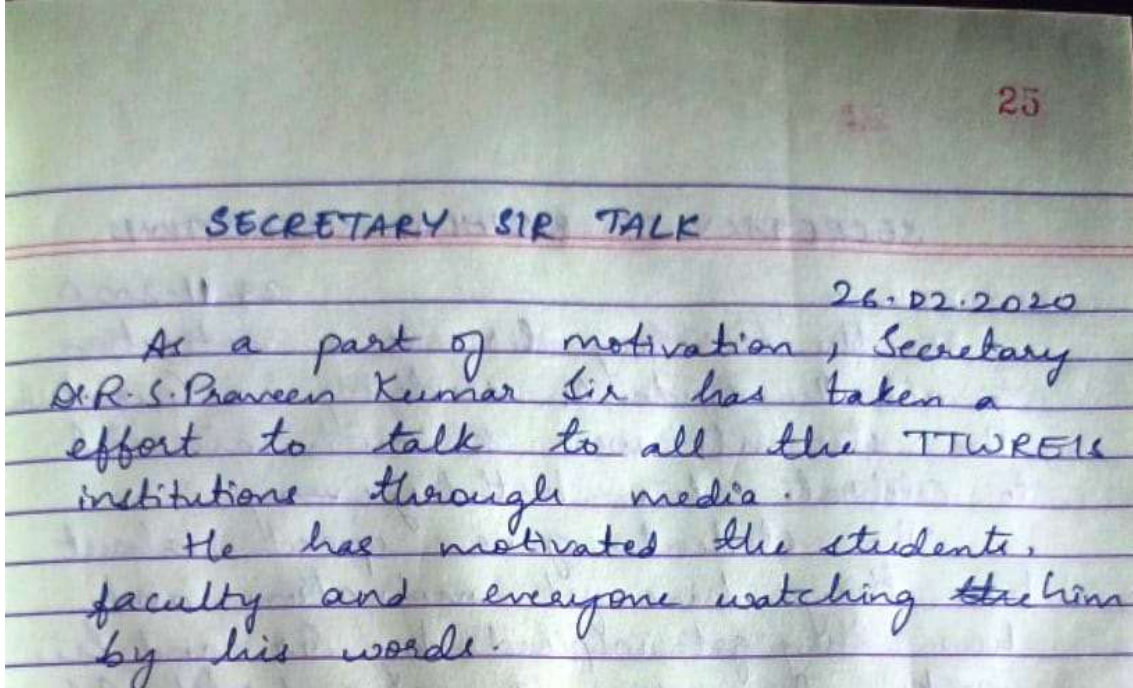 25
SECRETARY SIR TALK
26.02.2020
As a part of motivation, Secretary
Dr.R.S.Praveen Kumar Sir has taken a
effort to talk to all the TTWREIS
institutions through media.
He has motivated the students,
faculty and everyone watching the him
by his words.